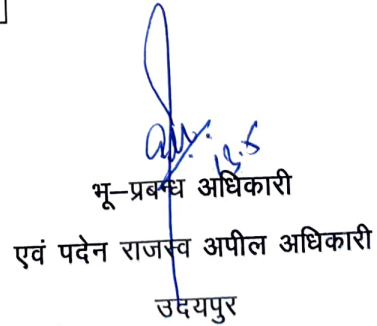 भू–प्रबन्ध अधिकारी
एवं पदेन राजस्व अपील अधिकारी
उदयपुर